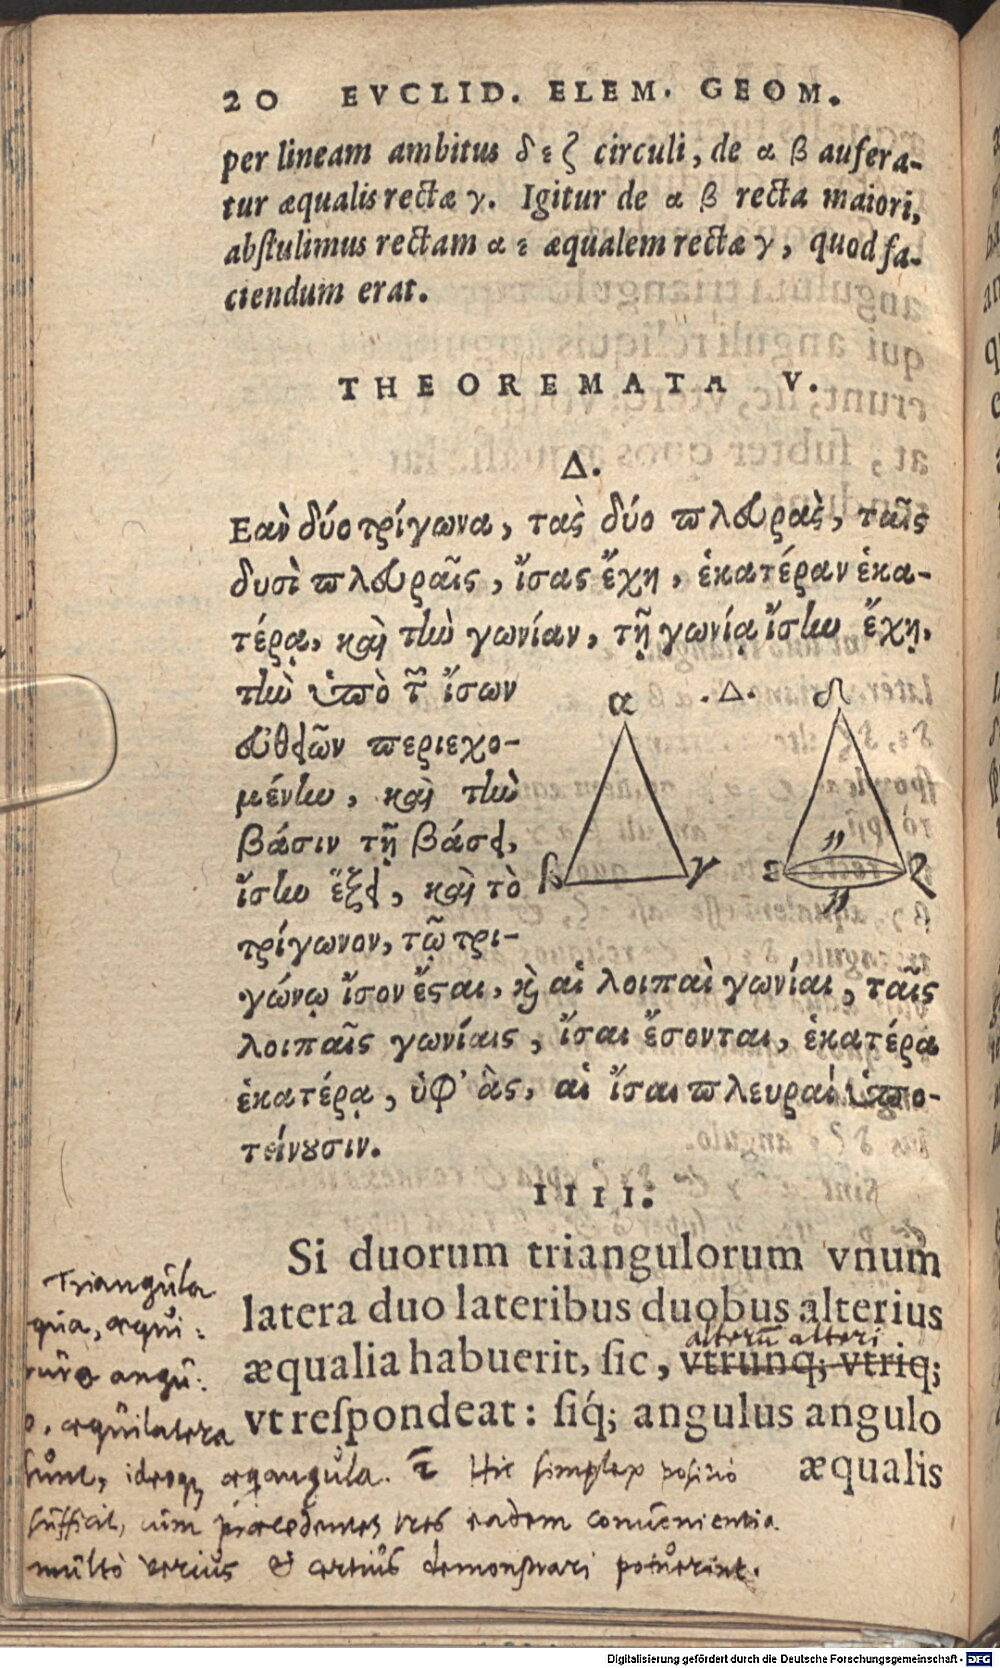 20 EVCLID. ELEM. GEOM.
per lineam ambitus δ ε ζ circuli, de α β aufera-
tur æqualis rectæ γ. Igitur de α β recta maiori,
abſtulimus rectam α ε æqualem rectæ γ, quod fa-
ciendum erat.
THEOREMATA V.
Δ.
Εαν δύο τρίγωνα, τὰς δύο πλευρὰς, ταῖς
δυσὶ πλευραῖς, ἴσας ἔχῃ, ἑκατέραν ἑκα-
τέρᾳ, καὶ τὴν γωνίαν, τῇ γωνίᾳ ἴσην ἔχῃ,
τὴν ὑπὸ τῶν ἴσων
εὐθειῶν περιεχο-
μένην, καὶ τὴν
βάσιν τῇ βάσει,
ἴσην ἕξει, καὶ τὸ
τρίγωνον, τῷ τρι-
γώνῳ ἴσον ἔσται, καὶ αἱ λοιπαὶ γωνίαι, ταῖς
λοιπαῖς γωνίαις, ἴσαι ἔσονται, ἑκατέρα
ἑκατέρᾳ, ὑφ' ἃς, αἱ ἴσαι πλευραὶ ὑπο-
τείνουσιν.
α .Δ. δ
β γ ε ζ
IIII.
Si duorum triangulorum vnum
latera duo lateribus duobus alterius
alterū alteri
æqualia habuerit, ſic, vtrunq; vtriq;
vt reſpondeat: ſiq́; angulus angulo
æqualis
Triangula
angu:
æquilatera
sunt, ideoq; æquangula. Hic simplex positio
sufficit, cum præcedentes tres eadem conuenientia
multo verius & certius demonstrari potuerint.
Digitalisierung gefördert durch die Deutsche Forschungsgemeinschaft - DFG